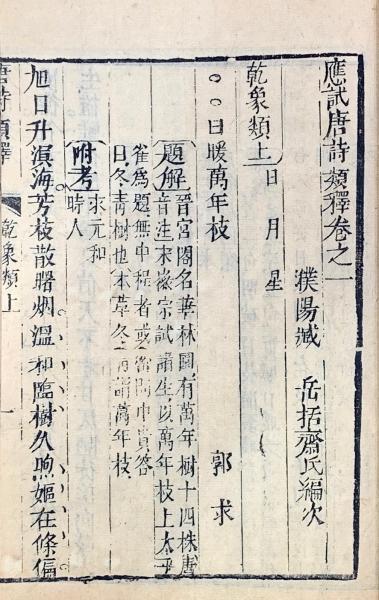 應試唐詩類釋卷之一
濮陽臧 岳拈齋氏編次
乾象類上 日 月 星
日暖萬年枝 郭 求
題解 晉宮閣名華林園有萬年樹十四株唐
音注宋徽宗試諸生以萬年枝上太平
雀爲題無中程者或密問中貴答
日冬青樹也本草冬青 謂萬年枝
附考 求元和
時人
旭日升溟海芳枝散曙烟溫和臨樹久煦嫗在條偏
唐詩類釋 乾象類上 一